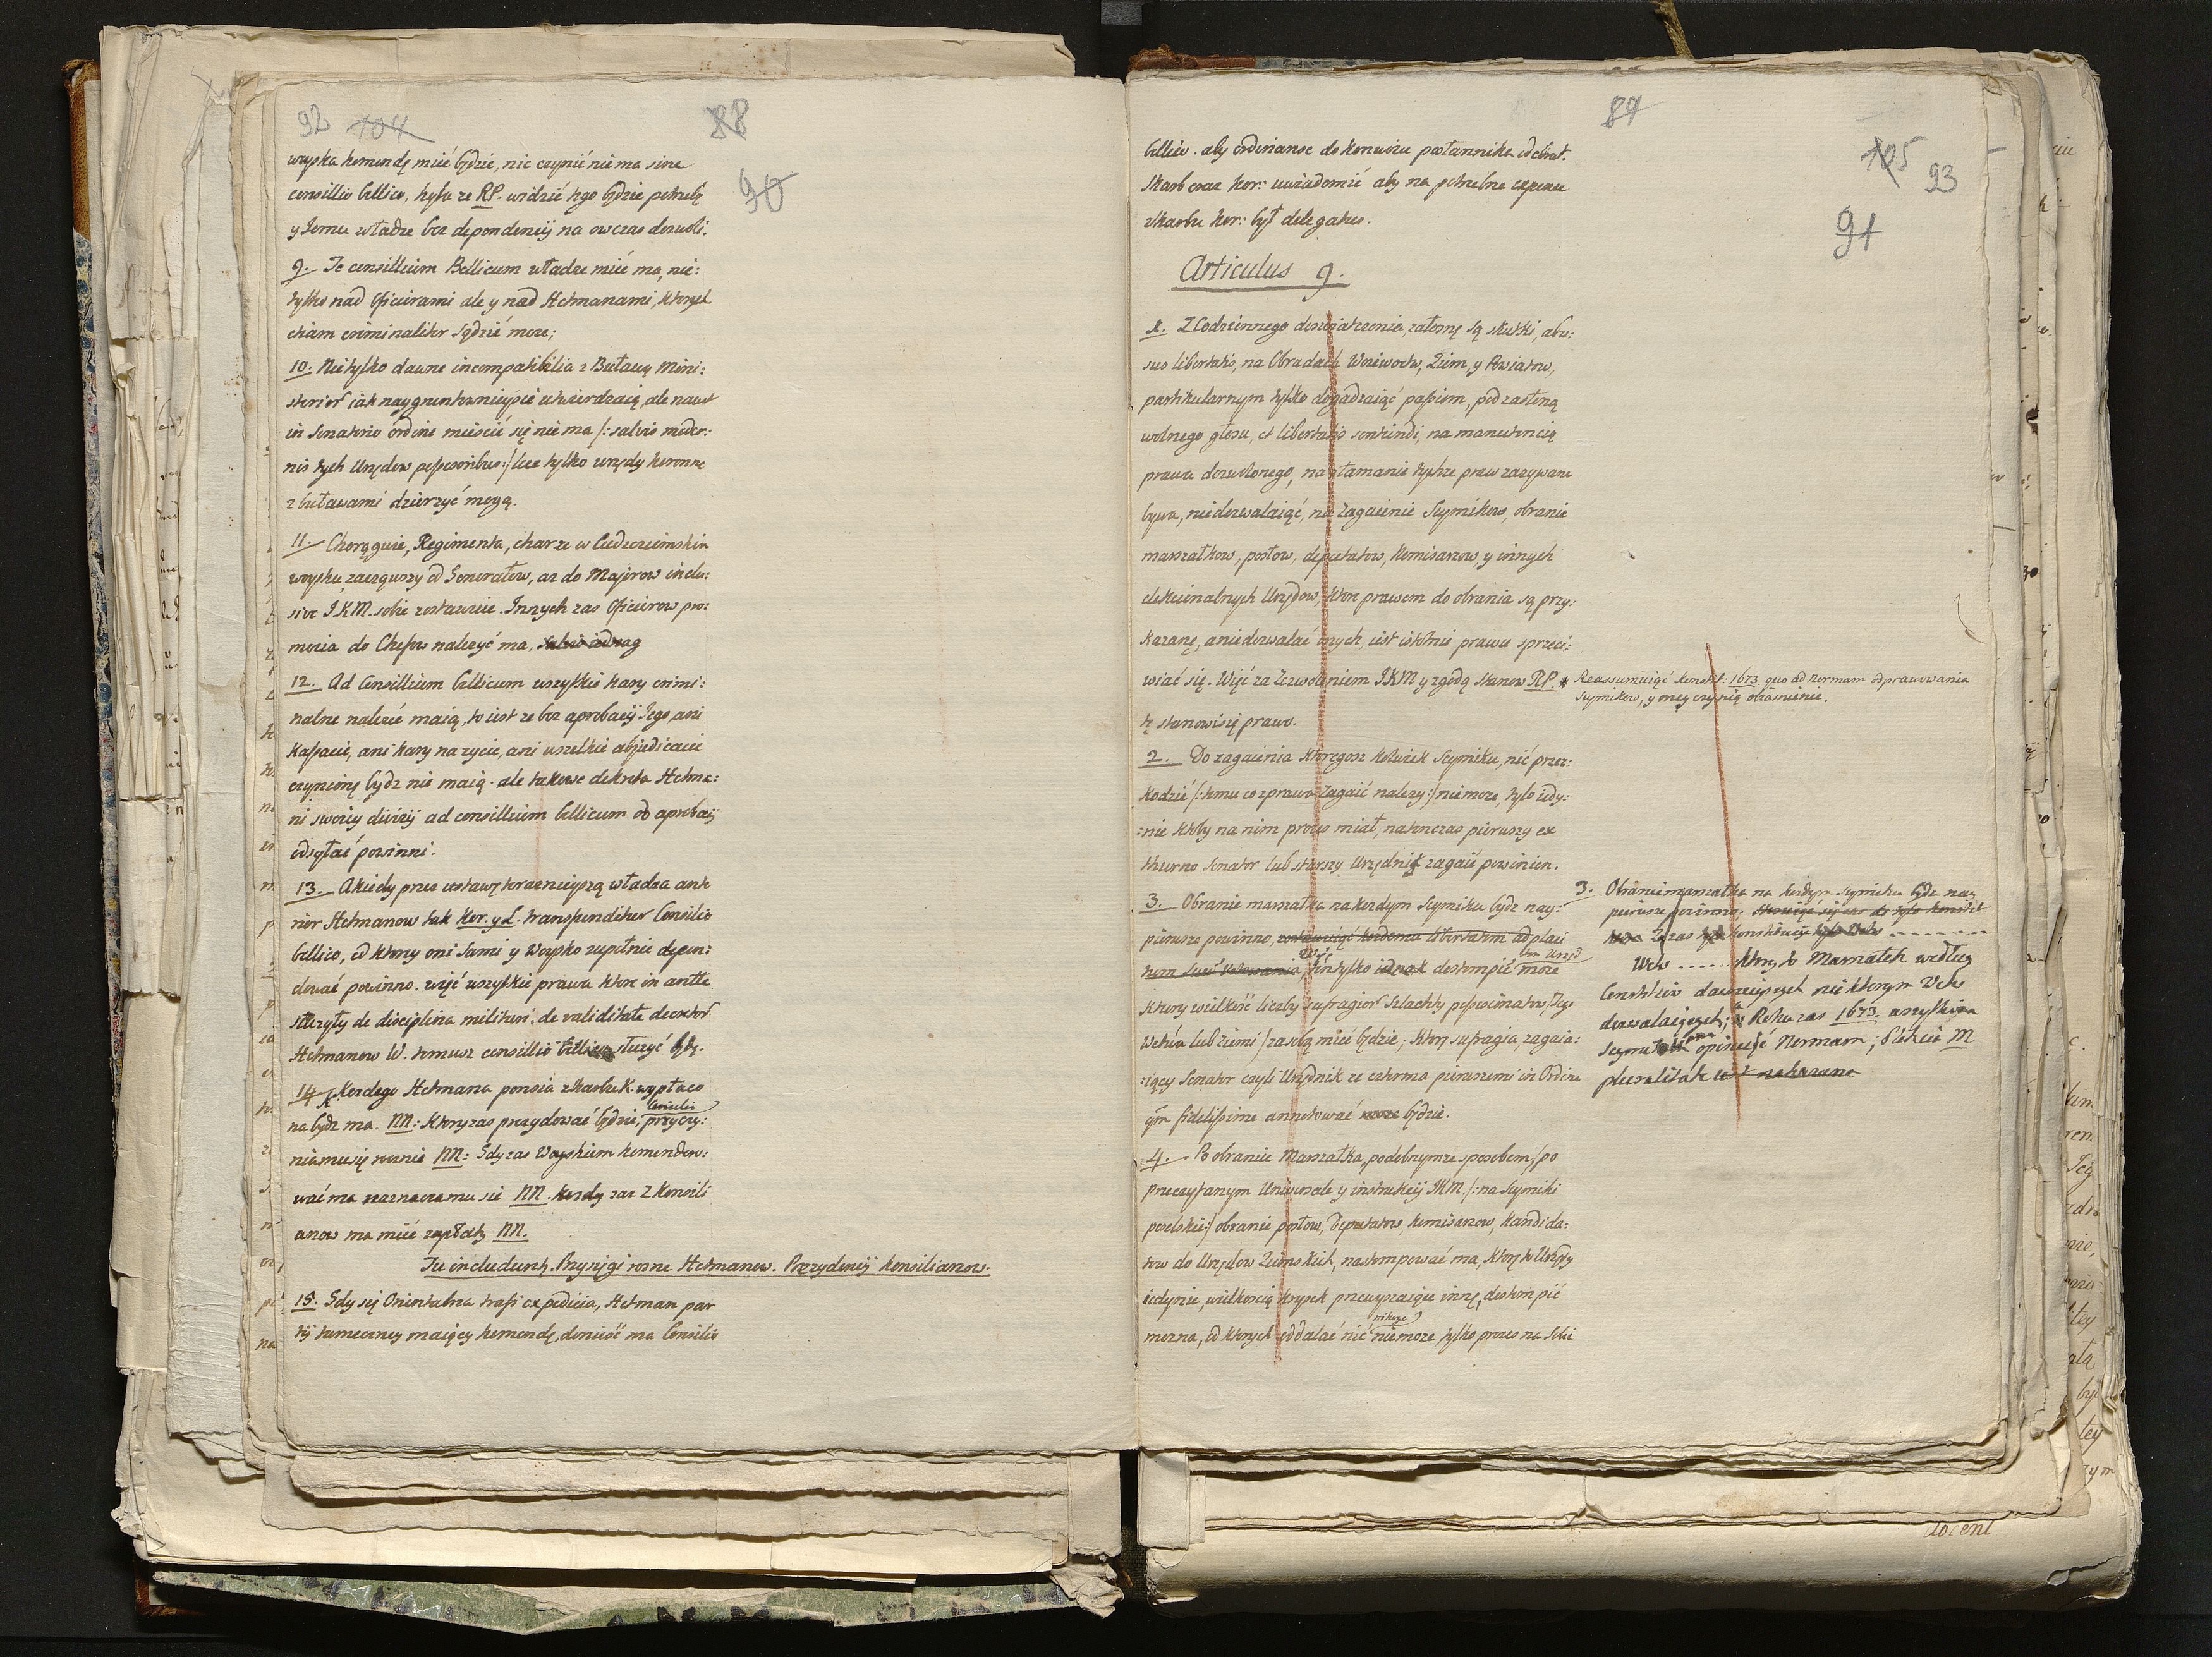 92 104 88
90
woyska komendę mieć będzie, nic czynić nie ma sine
consillio bellico, hyba ze RP. widzieć tego będzie potrzebę
y Jemu władze bez dependencij na owczas dozwoli.
9. Te consillium Bellicum władze mieć ma, nie:
tylko nad Oficierami ale y nad Hetmanami, ktorych
etiam criminaliter sądzić może;
10. Nie tylko dawne incompatibilia z Buławą Mini:
sterior iak naygruntowniey się utwierdzaią, ale nawet
in Senatorio ordine mieścić się nie ma /: salvis moder:
nis tych Urzędow possessoribus :/ lecz tylko urzędy koronne
z buławami dzierzyć mogą.
11. Chorągwie, Regimenta, charze w Cudzoziemskim
woysku, zacząwszy od Generałow, az do Majorow inclu:
sive J.K.M. sobie zostawuie. Innych zas Oficierow pro:
mocia do Chefow nalezyć ma,
12. Ad Consillium bellicum wszytkie kary crimi:
nalne nalezeć maią, to iest ze bez aprobacij Jego, ani
Kassacie, ani kary na zycie, ani wszelkie abjudicacie
czynione bydz nie maią. ale takowe dekreta Hetma:
ni swoiey divizij ad consillium bellicum do aprobacij
odsyłać powinni.
13. A kiedy przez ustawę teraznieyszą władza ante
rior Hetmanow tak Kor. y L. transfunditur Consilio
bellico, od ktorey oni Sami y Woysko zupełnie depen:
dować powinno. więc wszytkie prawa ktore in antea
służyły de disciplina militari, de validitate decretor
Hetmanow W. temusz consillio bellico służyć będą.
14. Kazdego Hetmana pensia z Skarbu K. wypłaco
na bydz ma. NN: Ktory zas prezydować będzie, Consilio przyczy:
nia mu się rocznie NN: Gdy zas Woyskiem komendero:
wać ma naznacza mu sie NN. kazdy zas z Konsili
anow ma mieć zapłaty NN.
Tu includunt. Przysięgi rozne Hetmanow. Prezydencij konsilianow.
15. Gdy się Orientalna trafi expedicia, Hetman par
tij tameczney maiący komendę, donieść ma Consilio
89
105 93
91
bellico. aby ordinanse do konwoiu posłannika odebrał.
Skarb oraz kor: uwiadomić aby na potrzebne expensa
z Skarbu kor: był delegatus.
Articulus 9.
1. Z Codziennego doswiatczenia, załosne są skutki, abu:
sus libertatis, na Obradach Woiewodztw, Ziem, y Powiatow,
partikularnym tylko dogadzaiąć passiom, pod zasłoną
wolnego głosu, et libertatis sentiendi, na manutencią
prawa dozwolonego, na złamanie tychze praw zazywane
bywa, niedozwalaiąć, na zagaienie Seymikow, obranie
marszałkow, posłow, deputatow, Komisarzow y innych
elekcionalnych Urzędow, ktore prawem do obrania są przy:
kazane, a niedozwalać onych, iest istotnie prawu sprzeci:
wiać się. Więć za Zezwoleniem JKM y zgodą Stanow RP. *
te stanowi się prawo.
* Reassumuiąć Constit: 1673. quo ad normam odprawowania
Seymikow, y onęy czynią obiasnienie.
2. Do zagaienia ktoregosz kolwiek Seymiku, nić przesz:
kodzić /: temu co z prawa Zagaić nalezy :/ nie moze, tylo iedy:
:nie ktoby na nim proces miał, natenczas pierwszy ex
thurno Senator lub starszy Urzędnik zagaić powinien.
3. Obranie marszałka na kazdym Seymiku bydz nay:
pierwsze powinno, zostawuiąć kazdemu libertatem ad placi
tum suum votowania, ten tylko iednak dostompić ten Urząd moze
ktory wielkość liczby sufragior Szlachty possessionatow Jego
Wztwa lub ziemi / za sobą mieć będzie; ktore sufragia, zagaia:
:iący Senator czyli Urzędnik ze czterma pierwszemi in Ordine
qm fidelissime annotować moze będzie.
3. Obranie marszałka na kazdym Seymiku bydz nay
pierwsze powinno;
Wztw ..... ktory to Marszałek według
Constitcio dawnieyszych niektorym Wztw
dozwalaiących; a Roku zas 1673. wszytkim
opisuiąć Normam, Elekcii M
pluralitate iest nakazane
4. Po obraniu Marszałka, podobnymze sposobem, po
przeczytanym Uniwersale y instrukcij JKM. /: na Seymiki
poselskie :/ obranie posłow, Deputatow, Komisarzow, Kandida:
tow do Urzędow Ziemskich, nastompować ma, ktore to Urzędy
iedynie, wielkoscią krysek przewyzszaiące inne, dostompić
mozna, od ktorych oddalać nić nikogo niemoze tylko proces na Sobie
docent